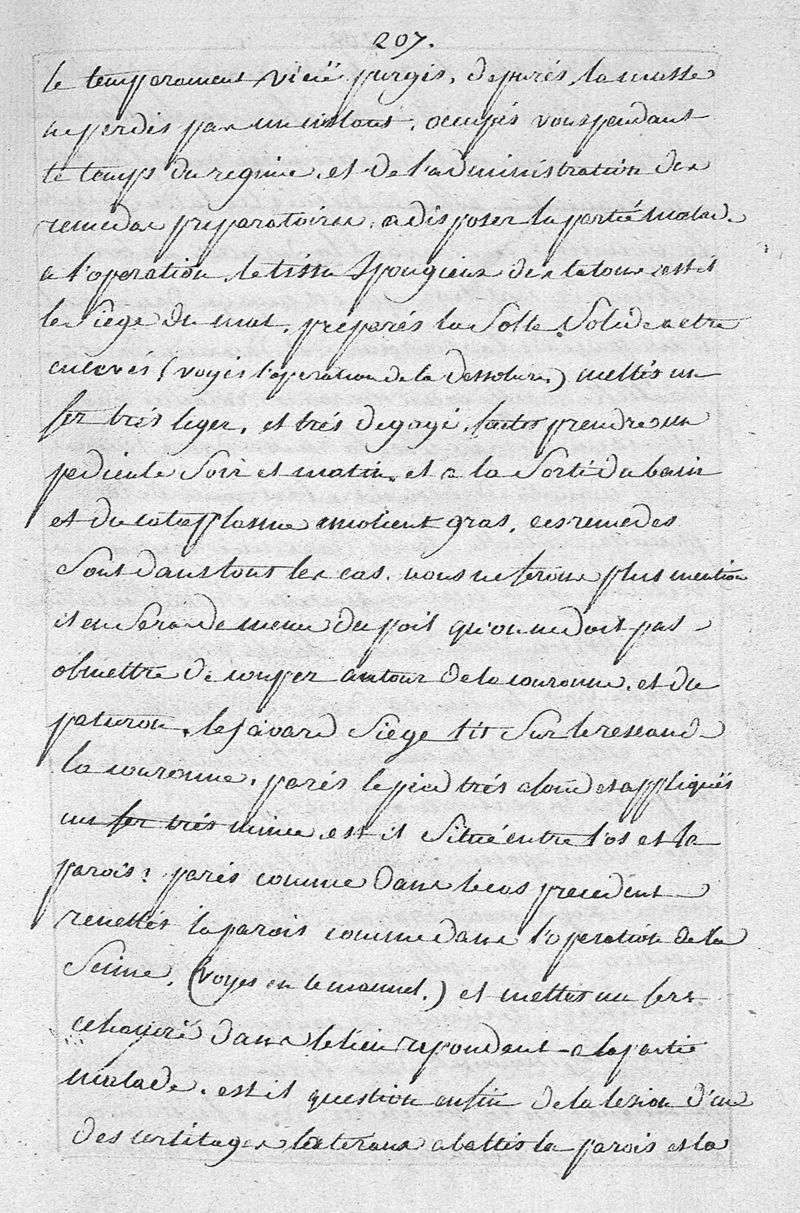 207.
le temperament vicié purgés, depurés, la masse
ne perdés pas un instant, occupés vous pendant
le temps du regime, et de l'administration des
remedes preparatoires, a disposer la partie malade
a l'operation, le tissu spongieux de la est il
le siege du mal, preparés la Solle Solide a etre
enlevés (voyes l'operation de la dessolure) mettés un
fer trés leger, et trés degagé, faites prendre un
pediluve Soir et matin, et a la Sortie du bain
et du cataplasme emolient gras, ces remedes
Sont dans tout les cas, nous ne ferons plus mention
il en Sera de meme du poil qu'on ne doit pas
obmettre de couper autour de la couronne, et du
paturon, le javard Siege t'il Sur le reseau de
la couronne, parés le pied trés a fond et appliqués
un fer trés mince, est il Situé entre l'os et la
parois? parés comme dans le cas precedent
renettés la parois comme dans l'operation de la
Seime, (voyes en le manuel.) et mettés un fer
echancré dans le lieu repondant a la partie
malade, est il question enfin de la lezion d'un
des cartilages lateraux abattés la parois et la